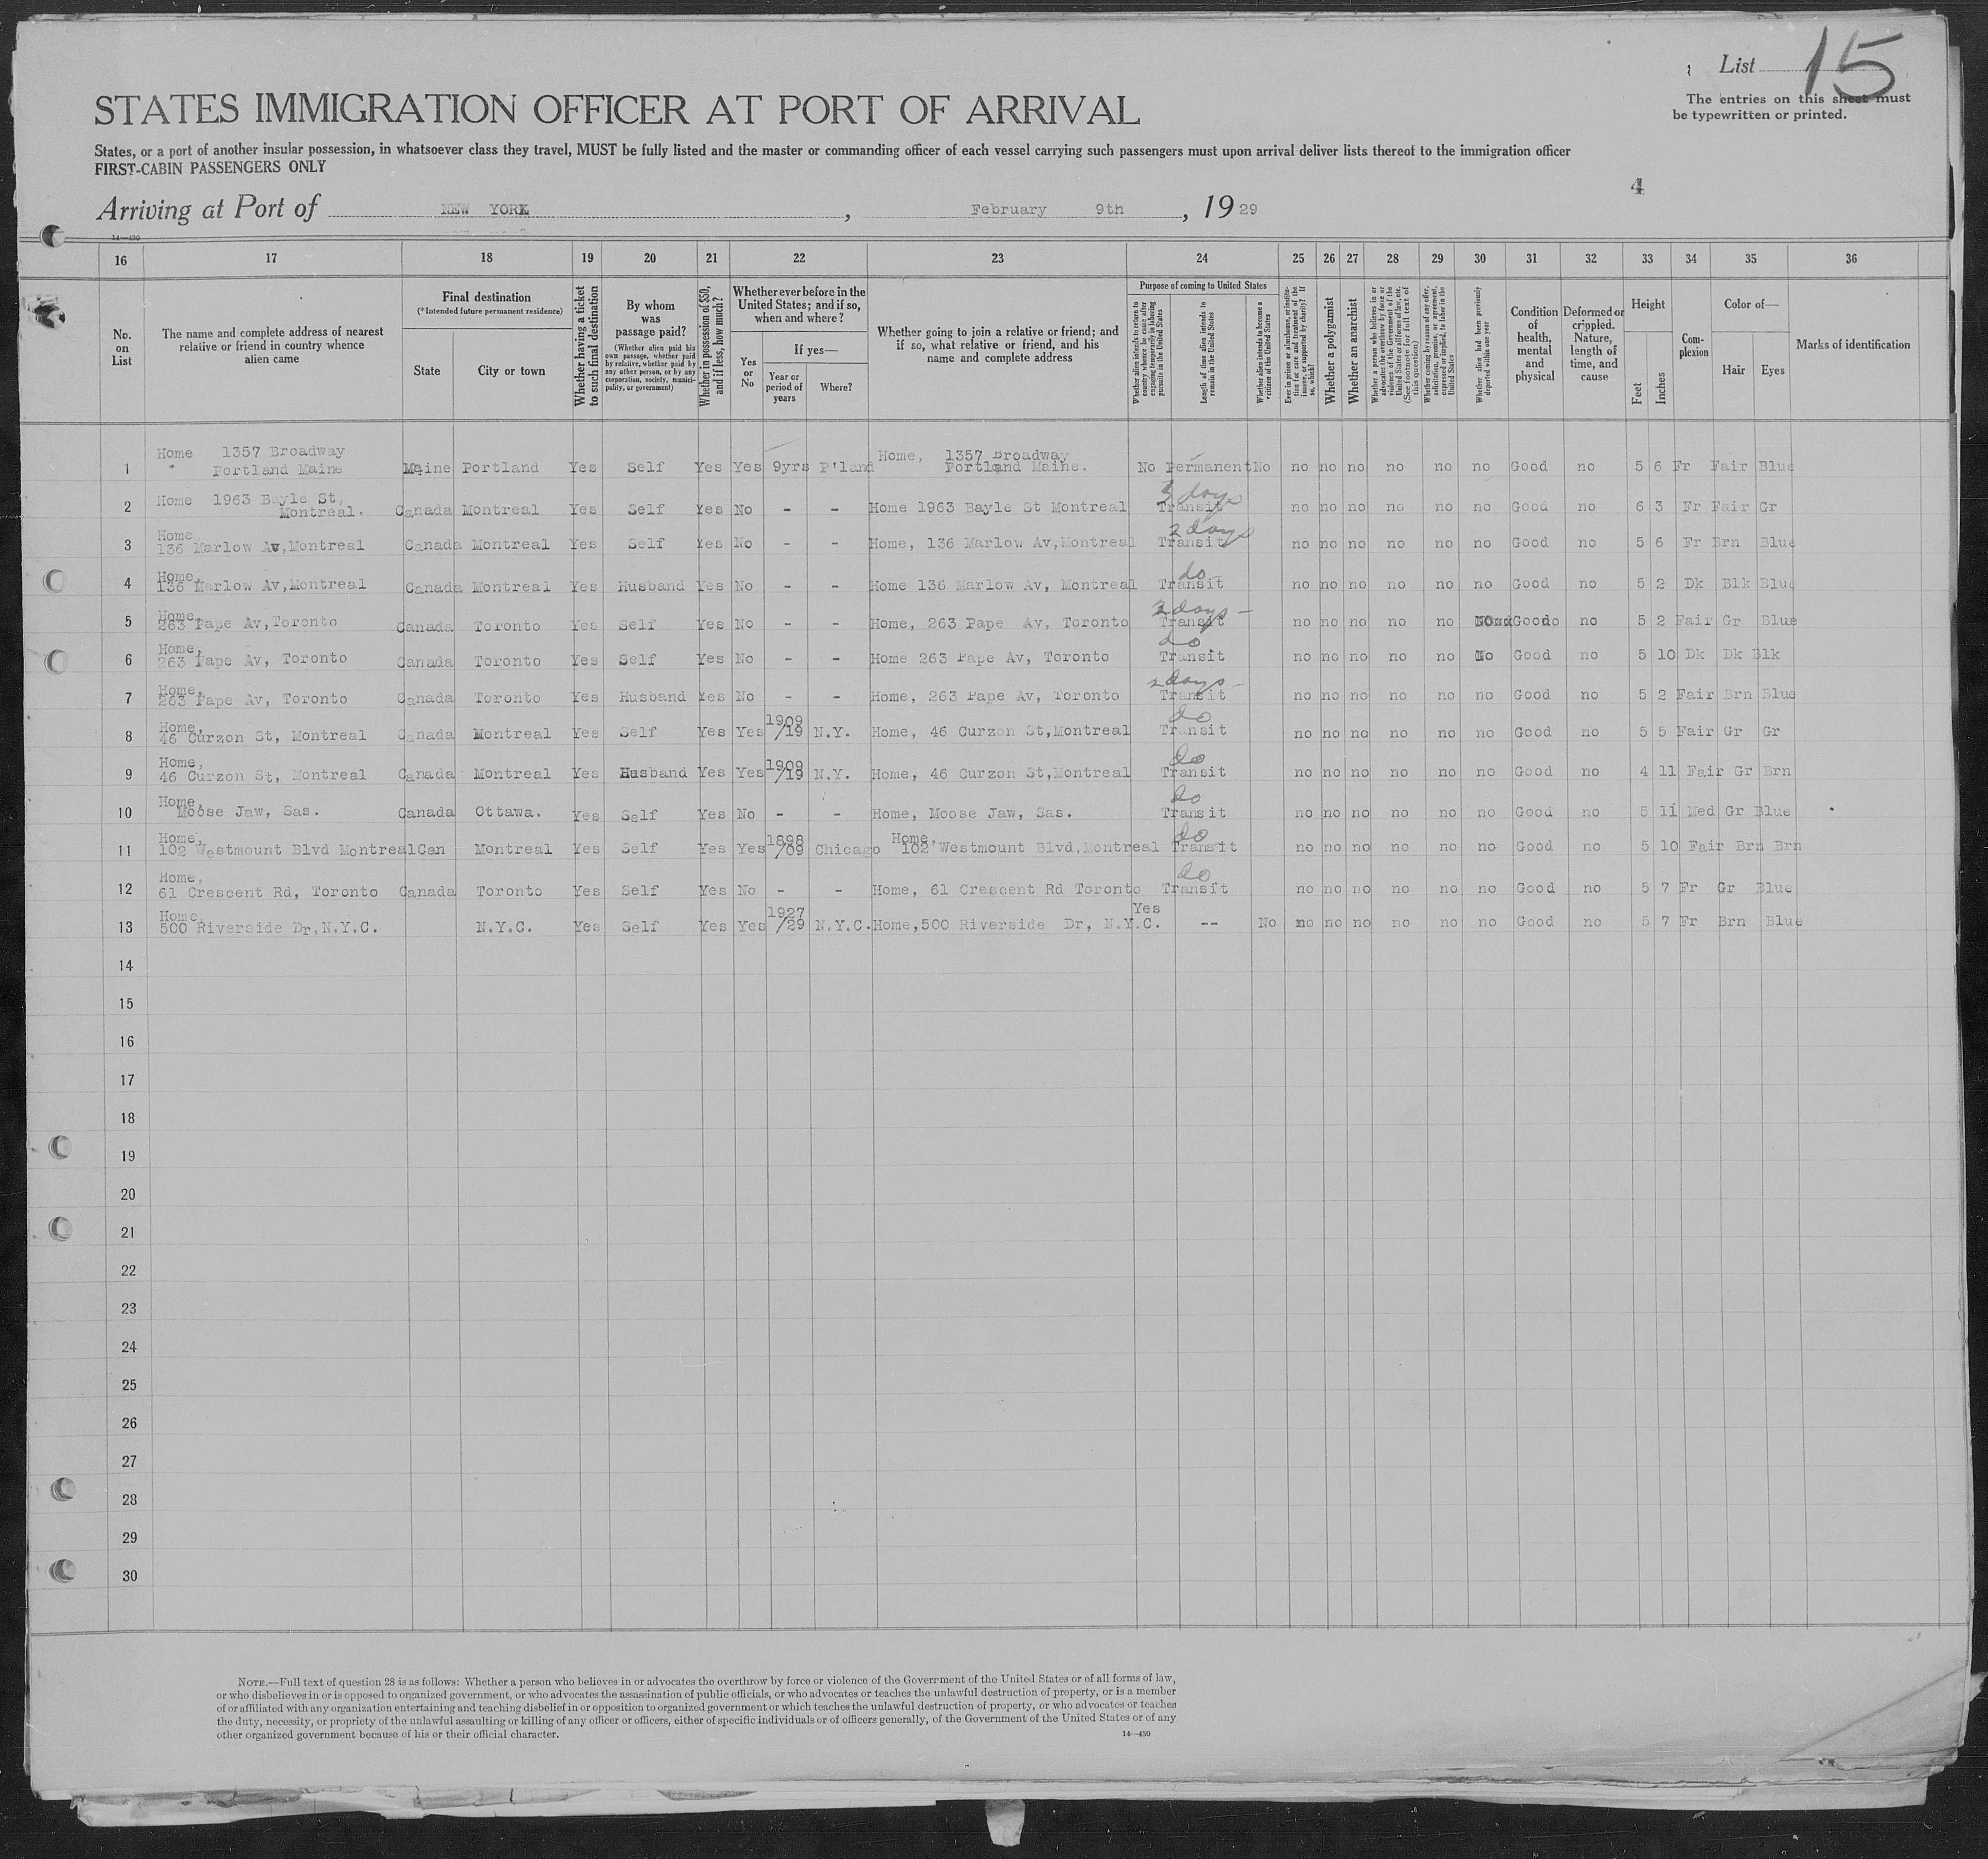 List 15
The entries on this sheet must
be typewritten or printed.
STATES IMMIGRATION OFFICER AT PORT OF ARRIVAL
States, or a port of another insular possession, in whatsoever class they travel, MUST be fully listed and the master or commanding officer of each vessel carrying such passengers must upon arrival deliver lists thereof to the immigration officer
FIRST-CABIN PASSENGERS ONLY
4
Arriving at Port of NEW YORK, February 9th, 1929
14—430
16 17 18 19 20 21 22 23 24 25 26 27 28 29 30 31 32 33 34 35 36
No. on List
The name and complete address of nearest relative or friend in country whence alien came
Final destination
(*Intended future permanent residence)
State
City or town
Whether having a ticket to such final destination
By whom was passage paid?
(Whether alien paid his own passage, whether paid by relative, whether paid by any other person, or by any corporation, society, municipality, or government)
Whether in possession of $50, and if less, how much?
Whether ever before in the United States; and if so, when and where?
Yes or No
If yes—
Year or period of years
Where?
Whether going to join a relative or friend; and if so, what relative or friend, and his name and complete address
Purpose of coming to United States
Whether alien intends to return to country whence he came after engaging temporarily in laboring pursuits in the United States
Length of time alien intends to remain in the United States
Whether alien intends to become a citizen of the United States
Ever in prison or almshouse, or institution for care and treatment of the insane, or supported by charity? If so, which?
Whether a polygamist
Whether an anarchist
Whether a person who believes in or advocates the overthrow by force or violence of the Government of the United States or all forms of law, etc. (See footnote for full text of this question)
Whether coming by reason of any offer, solicitation, promise, or agreement, expressed or implied, to labor in the United States
Whether alien had been previously deported within one year
Condition of health, mental and physical
Deformed or crippled. Nature, length of time, and cause
Height
Feet
Inches
Complexion
Color of—
Hair
Eyes
Marks of identification
1 Home 1357 Broadway " Portland Maine Maine Portland Yes Self Yes Yes 9yrs P'land Home, 1357 Broadway Portland Maine. No Permanent No no no no no no no Good no 5 6 Fr Fair Blue
2 Home 1963 Bayle St, Montreal. Canada Montreal Yes Self Yes No - - Home 1963 Bayle St Montreal 3 days Transit no no no no no no Good no 6 3 Fr Fair Gr
3 Home, 136 Marlow Av,Montreal Canada Montreal Yes Self Yes No - - Home, 136 Marlow Av,Montreal 2 days Transit no no no no no no Good no 5 6 Fr Brn Blue
4 Home, 136 Marlow Av,Montreal Canada Montreal Yes Husband Yes No - - Home 136 Marlow Av, Montreal do Transit no no no no no no Good no 5 2 Dk Blk Blue
5 Home, 263 Pape Av,Toronto Canada Toronto Yes Self Yes No - - Home, 263 Pape Av, Toronto days — Transit no no no no no Good no 5 2 Fair Gr Blue
6 Home, 263 Pape Av, Toronto Canada Toronto Yes Self Yes No - - Home 263 Pape Av, Toronto do Transit no no no no no No Good no 5 10 Dk Dk Blk
7 Home, 263 Pape Av, Toronto Canada Toronto Yes Husband Yes No - - Home, 263 Pape Av, Toronto 2 days — Transit no no no no no no Good no 5 2 Fair Brn Blue
8 Home, 46 Curzon St, Montreal Canada Montreal Yes Self Yes Yes 1909/19 N.Y. Home, 46 Curzon St,Montreal do Transit no no no no no no Good no 5 5 Fair Gr Gr
9 Home, 46 Curzon St, Montreal Canada Montreal Yes Husband Yes Yes 1909/19 N.Y. Home, 46 Curzon St,Montreal do Transit no no no no no no Good no 4 11 Fair Gr Brn
10 Home, Moose Jaw, Sas. Canada Ottawa. Yes Self Yes No - - Home, Moose Jaw, Sas. do Transit no no no no no no Good no 5 11 Med Gr Blue
11 Home, 102 Westmount Blvd Montreal Can Montreal Yes Self Yes Yes 1898/09 Chicago Home, 102 Westmount Blvd,Montreal do Transit no no no no no no Good no 5 10 Fair Brn Brn
12 Home, 61 Crescent Rd, Toronto Canada Toronto Yes Self Yes No - - Home, 61 Crescent Rd Toronto do Transit no no no no no no Good no 5 7 Fr Gr Blue
13 Home, 500 Riverside Dr,N.Y.C. N.Y.C. Yes Self Yes Yes 1927/29 N.Y.C. Home,500 Riverside Dr, N.Y.C. Yes -- No no no no no no no Good no 5 7 Fr Brn Blue
14
15
16
17
18
19
20
21
22
23
24
25
26
27
28
29
30
NOTE.—Full text of question 28 is as follows: Whether a person who believes in or advocates the overthrow by force or violence of the Government of the United States or of all forms of law,
or who disbelieves in or is opposed to organized government, or who advocates the assassination of public officials, or who advocates or teaches the unlawful destruction of property, or is a member
of or affiliated with any organization entertaining and teaching disbelief in or opposition to organized government or which teaches the unlawful destruction of property, or who advocates or teaches
the duty, necessity, or propriety of the unlawful assaulting or killing of any officer or officers, either of specific individuals or of officers generally, of the Government of the United States or of any
other organized government because of his or their official character.
14—430